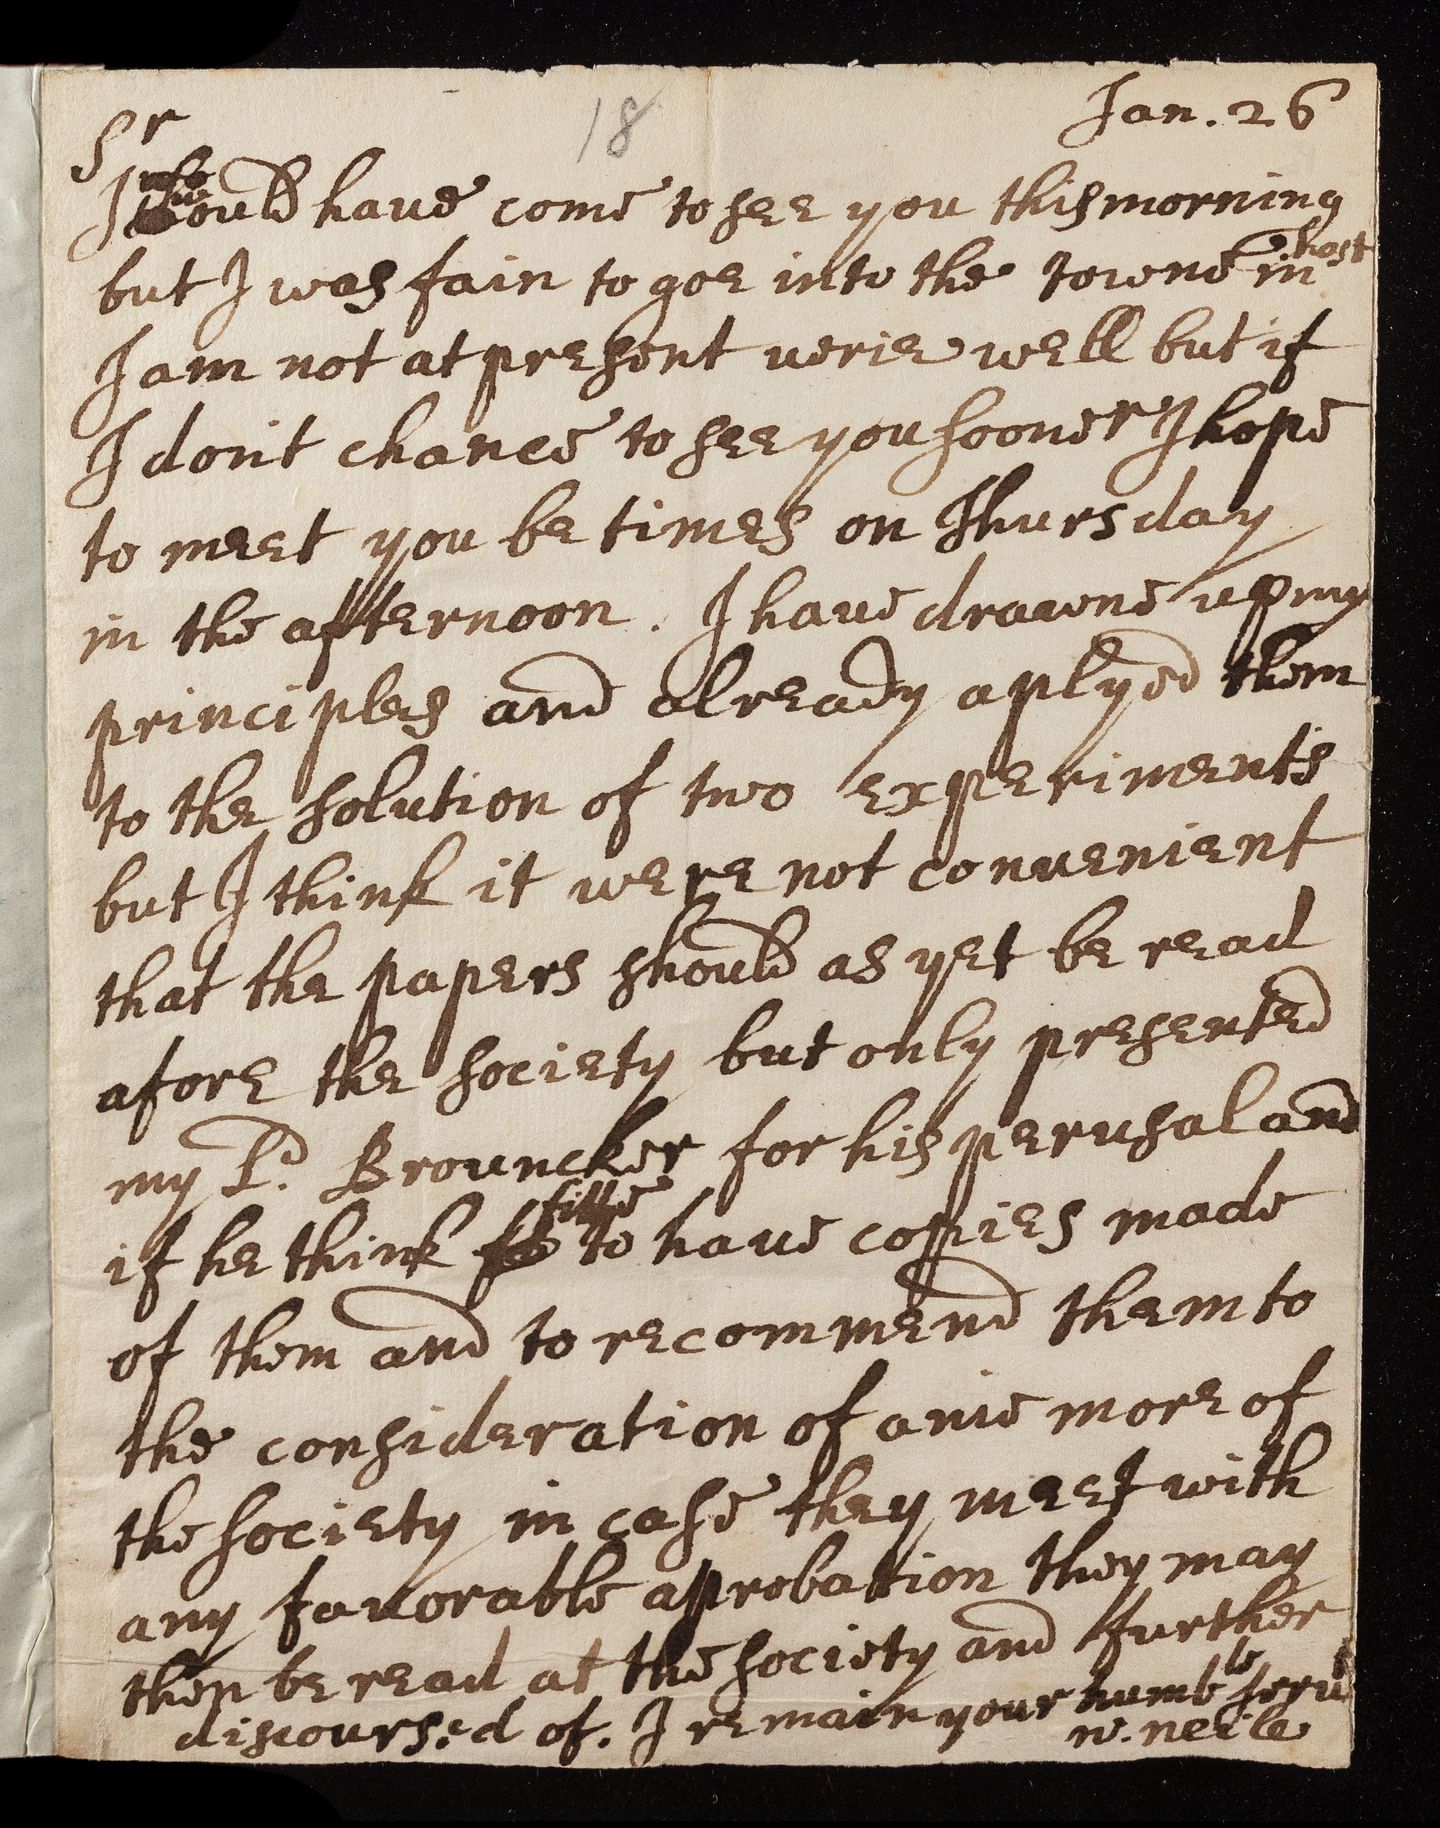 18
Jan. 26
Sr
I would have come to see you this morning
but I was fain to goe into the towne in hast
I am not at present verie well but if
I don't chance to see you sooner I hope
to meet you be times on Thursday
in the afternoon. I have drawne up my
principles and already aplyed them
to the solution of two experiments
but I think it were not convenient
that the papers should as yet be read
afore the society but only presented
my Ld. Brouncker for his perusal and
if he think fitte to have copies made
of them and to recommend them to
the consideration of anie more of
the society in case they meet with
any favorable aprobation they may
then be read at the society and further
discoursed of. I remain your humble servt
w. neile